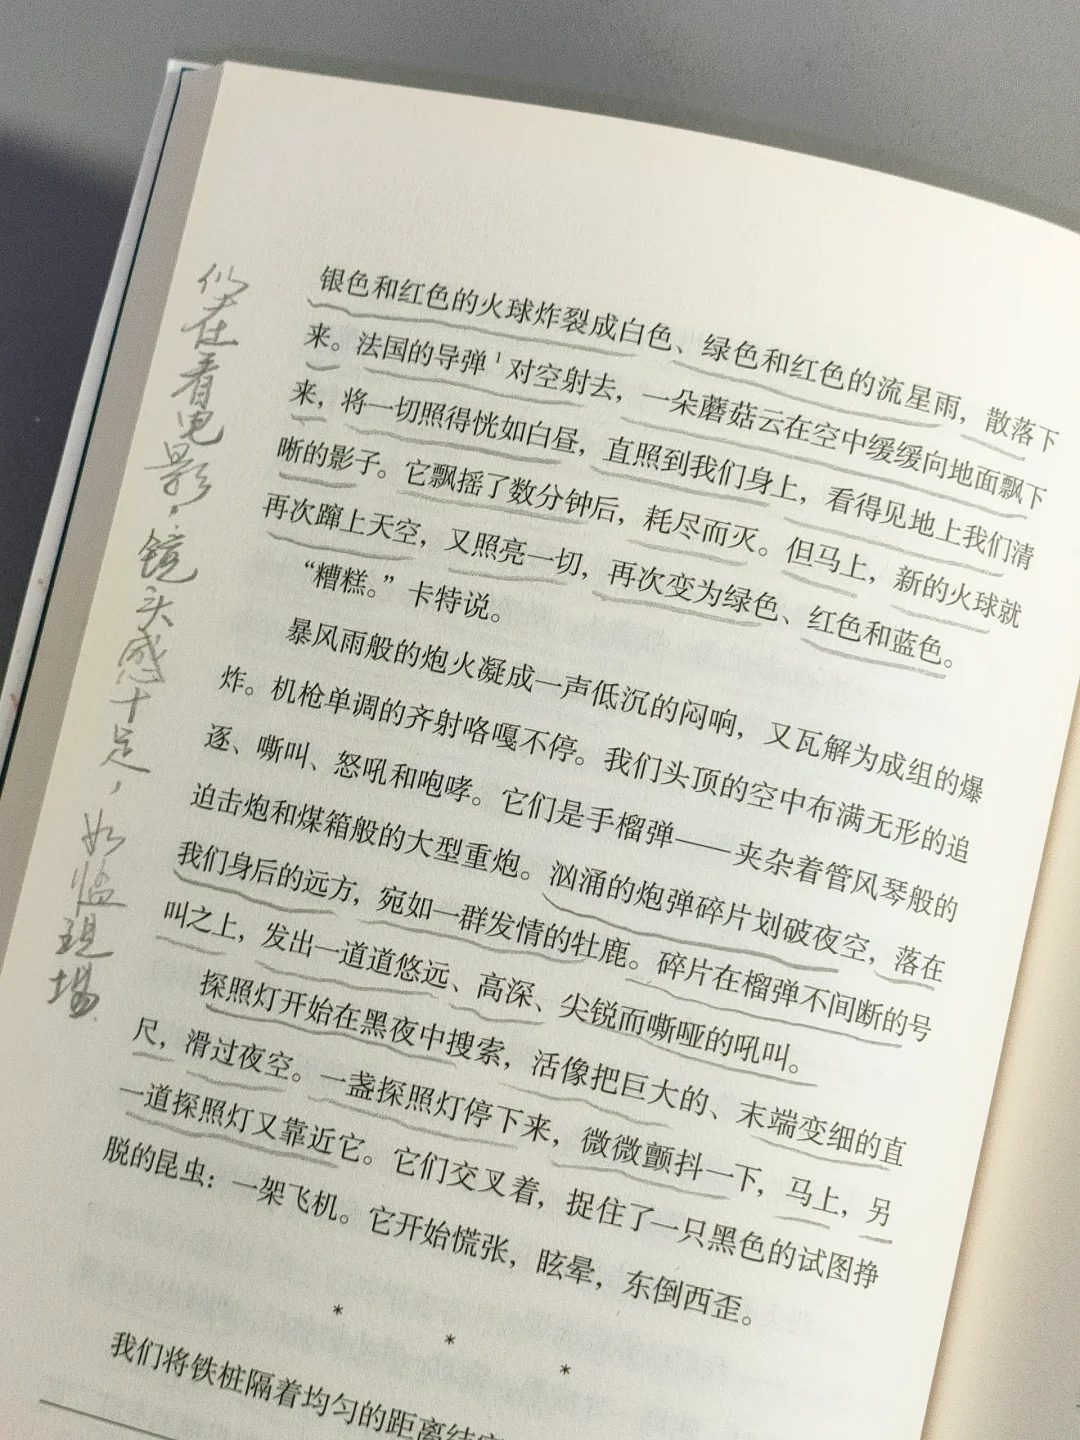 银色和红色的火球炸裂成白色、绿色和红色的流星雨，散落下
来。法国的导弹¹对空射去，一朵蘑菇云在空中缓缓向地面飘下
来，将一切照得恍如白昼，直照到我们身上，看得见地上我们清
晰的影子。它飘摇了数分钟后，耗尽而灭。但马上，新的火球就
再次蹿上天空，又照亮一切，再次变为绿色、红色和蓝色。
“糟糕。”卡特说。
暴风雨般的炮火凝成一声低沉的闷响，又瓦解为成组的爆
炸。机枪单调的齐射咯嘎不停。我们头顶的空中布满无形的追
逐、嘶叫、怒吼和咆哮。它们是手榴弹——夹杂着管风琴般的
迫击炮和煤箱般的大型重炮。汹涌的炮弹碎片划破夜空，落在
我们身后的远方，宛如一群发情的牡鹿。碎片在榴弹不间断的号
叫之上，发出一道道悠远、高深、尖锐而嘶哑的吼叫。
探照灯开始在黑夜中搜索，活像把巨大的、末端变细的直
尺，滑过夜空。一盏探照灯停下来，微微颤抖一下，马上，另
一道探照灯又靠近它。它们交叉着，捉住了一只黑色的试图挣
脱的昆虫：一架飞机。它开始慌张，眩晕，东倒西歪。
* * *
我们将铁桩隔着均匀的距离
似在看电影，镜头感十足，如临现场